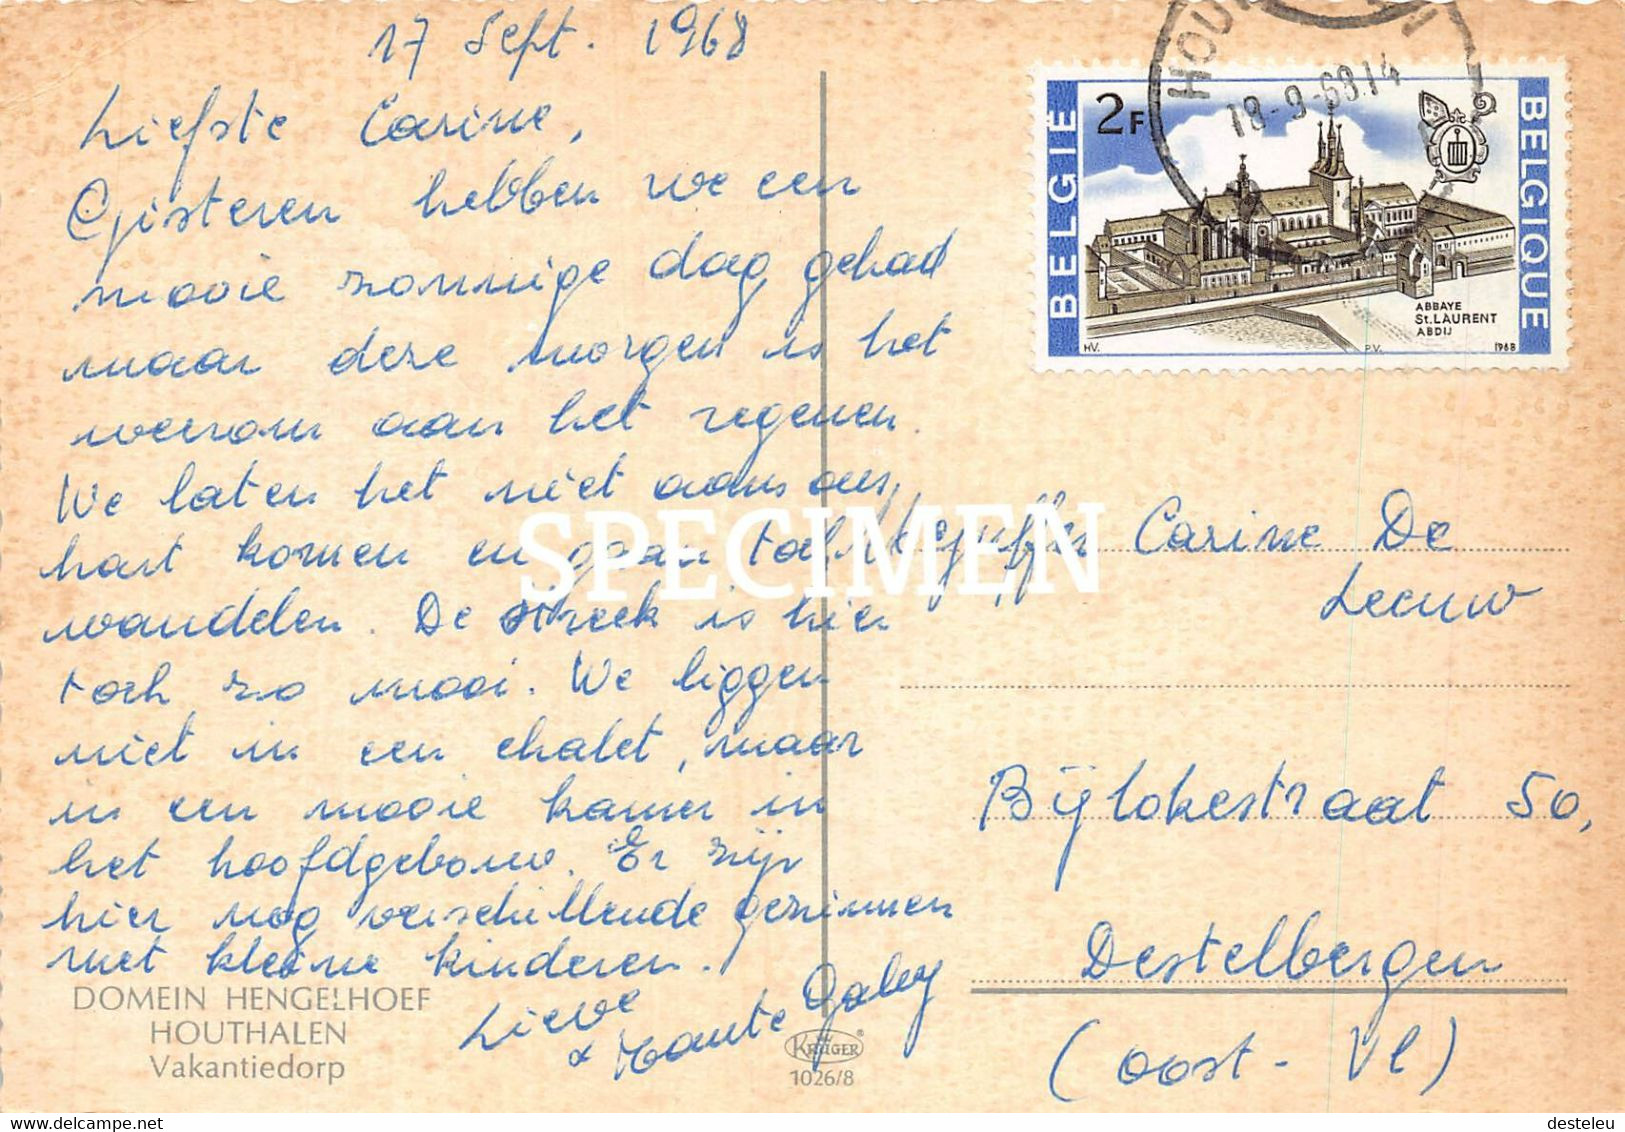 17 Sept. 1968
Liefste Carine,
Gisteren hebben we een
mooie zonnige dag gehad
maar deze morgen is het
weerom aan het regenen.
We laten het niet aan ons
hart komen en gaan toch
wandelen. De streek is hier
toch zo mooi. We liggen
niet in een chalet, maar
in een mooie kamer in
het hoofdgebouw. Er zijn
hier nog verschillende gezinnen
met kleine kinderen.
Lieve
& Tante Gaby
DOMEIN HENGELHOEF
HOUTHALEN
Vakantiedorp
KRÜGER
1026/8
18-9-68.14
BELGIE
2F
BELGIQUE
ABBAYE
St. LAURENT
ABDIJ
HV.
P.V.
1968
Carine De
Leeuw
Bijlokestraat 50,
Destelbergen
(Oost-Vl)
SPECIMEN
delcampe.net
desteleu